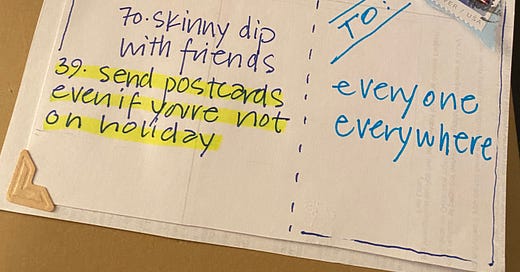 70. skinny dip
with friends
39. send postcards
even if you're not
on holiday
TO:
everyone
everywhere